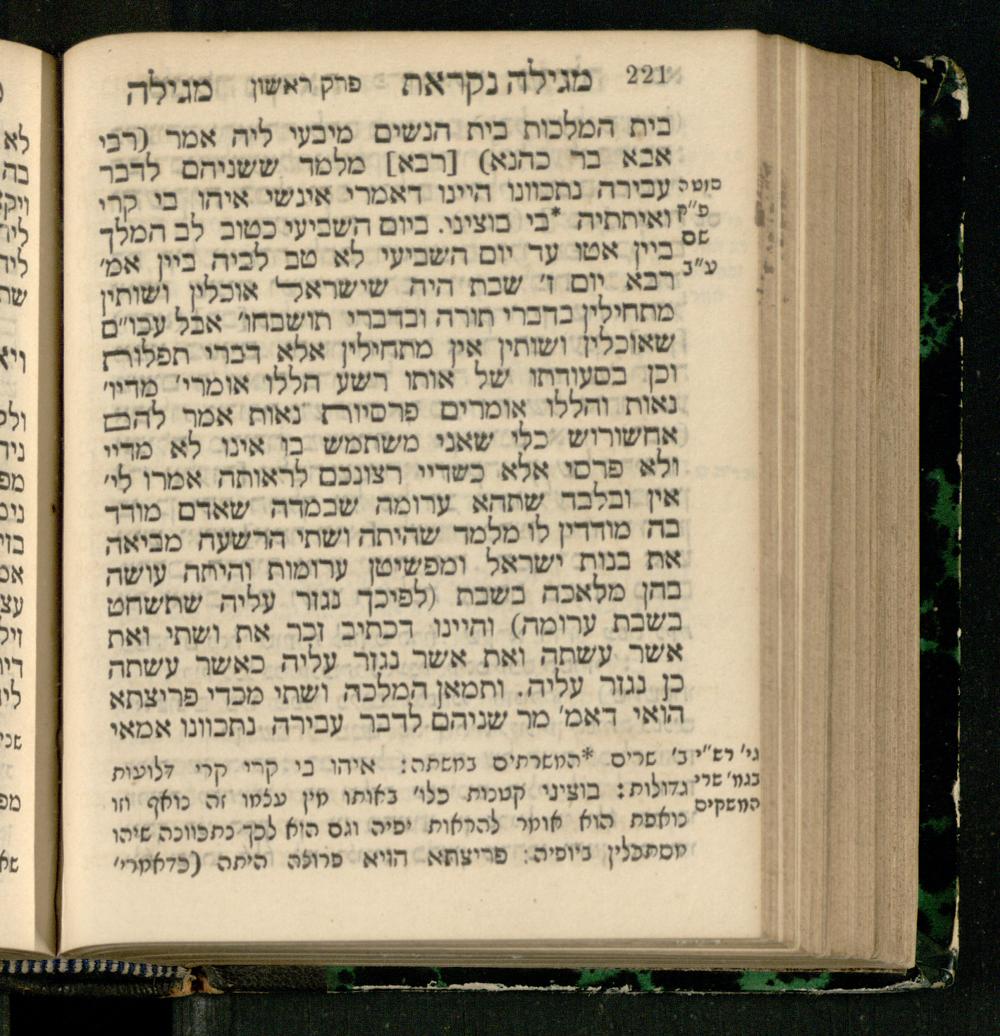 221 מגילה נקראת פרק ראשון מגילה
בית המלכות בית הנשים מיבעי ליה אמר (רבי
אבא בר כהנא) [רבא] מלמד ששניהם לדבר
עבירה נתכוונו היינו דאמרי אינשי איהו בי קרי
ואיתתיה *בי בוציני. ביום השביעי כטוב לב המלך
ביין אטו עד יום השביעי לא טב לביה ביין אמ׳
רבא יום ז׳ שבת היה שישראל אוכלין ושותין
מתחילין בדברי תורה ובדברי תושבחו׳ אבל עכו״ם
שאוכלין ושותין אין מתחילין אלא דברי תפלות
וכן בסעודתו של אותו רשע הללו אומרי׳ מדיו׳
נאות והללו אומרים פרסיות נאות אמר להם
אחשורוש כלי שאני משתמש בו אינו לא מדיי
ולא פרסי אלא כשדיי רצונכם לראותה אמרו לי׳
אין ובלבד שתהא ערומה שבמדה שאדם מודד
בה מודדין לו מלמד שהיתה ושתי הרשעה מביאה
את בנות ישראל ומפשיטן ערומות והיתה עושה
בהן מלאכה בשבת (לפיכך נגזר עליה שתשחט
בשבת ערומה) והיינו דכתיב זכר את ושתי ואת
אשר עשתה ואת אשר נגזר עליה כאשר עשתה
כן נגזר עליה. ותמאן המלכה ושתי מכדי פריצתא
הואי דאמ׳ מר שניהם לדבר עבירה נתכוונו אמאי
סוטה
פ״ק
שם
ע״ב
ב׳ שרים *המשרתים במשתה: איהו בי קרי קרי דלועות
גדולות: בוציני קטנות כלו׳ באותו מין עצמו זה נואף וזו
נואפת הוא אומר להראות יפיה וגם היא לכך נתכוונה שיהו
מסתכלין ביופיה: פריצתא הויא פרוצה היתה (כדאמרי׳
גי׳ רש״י
בגמ׳ שרי
המשקים